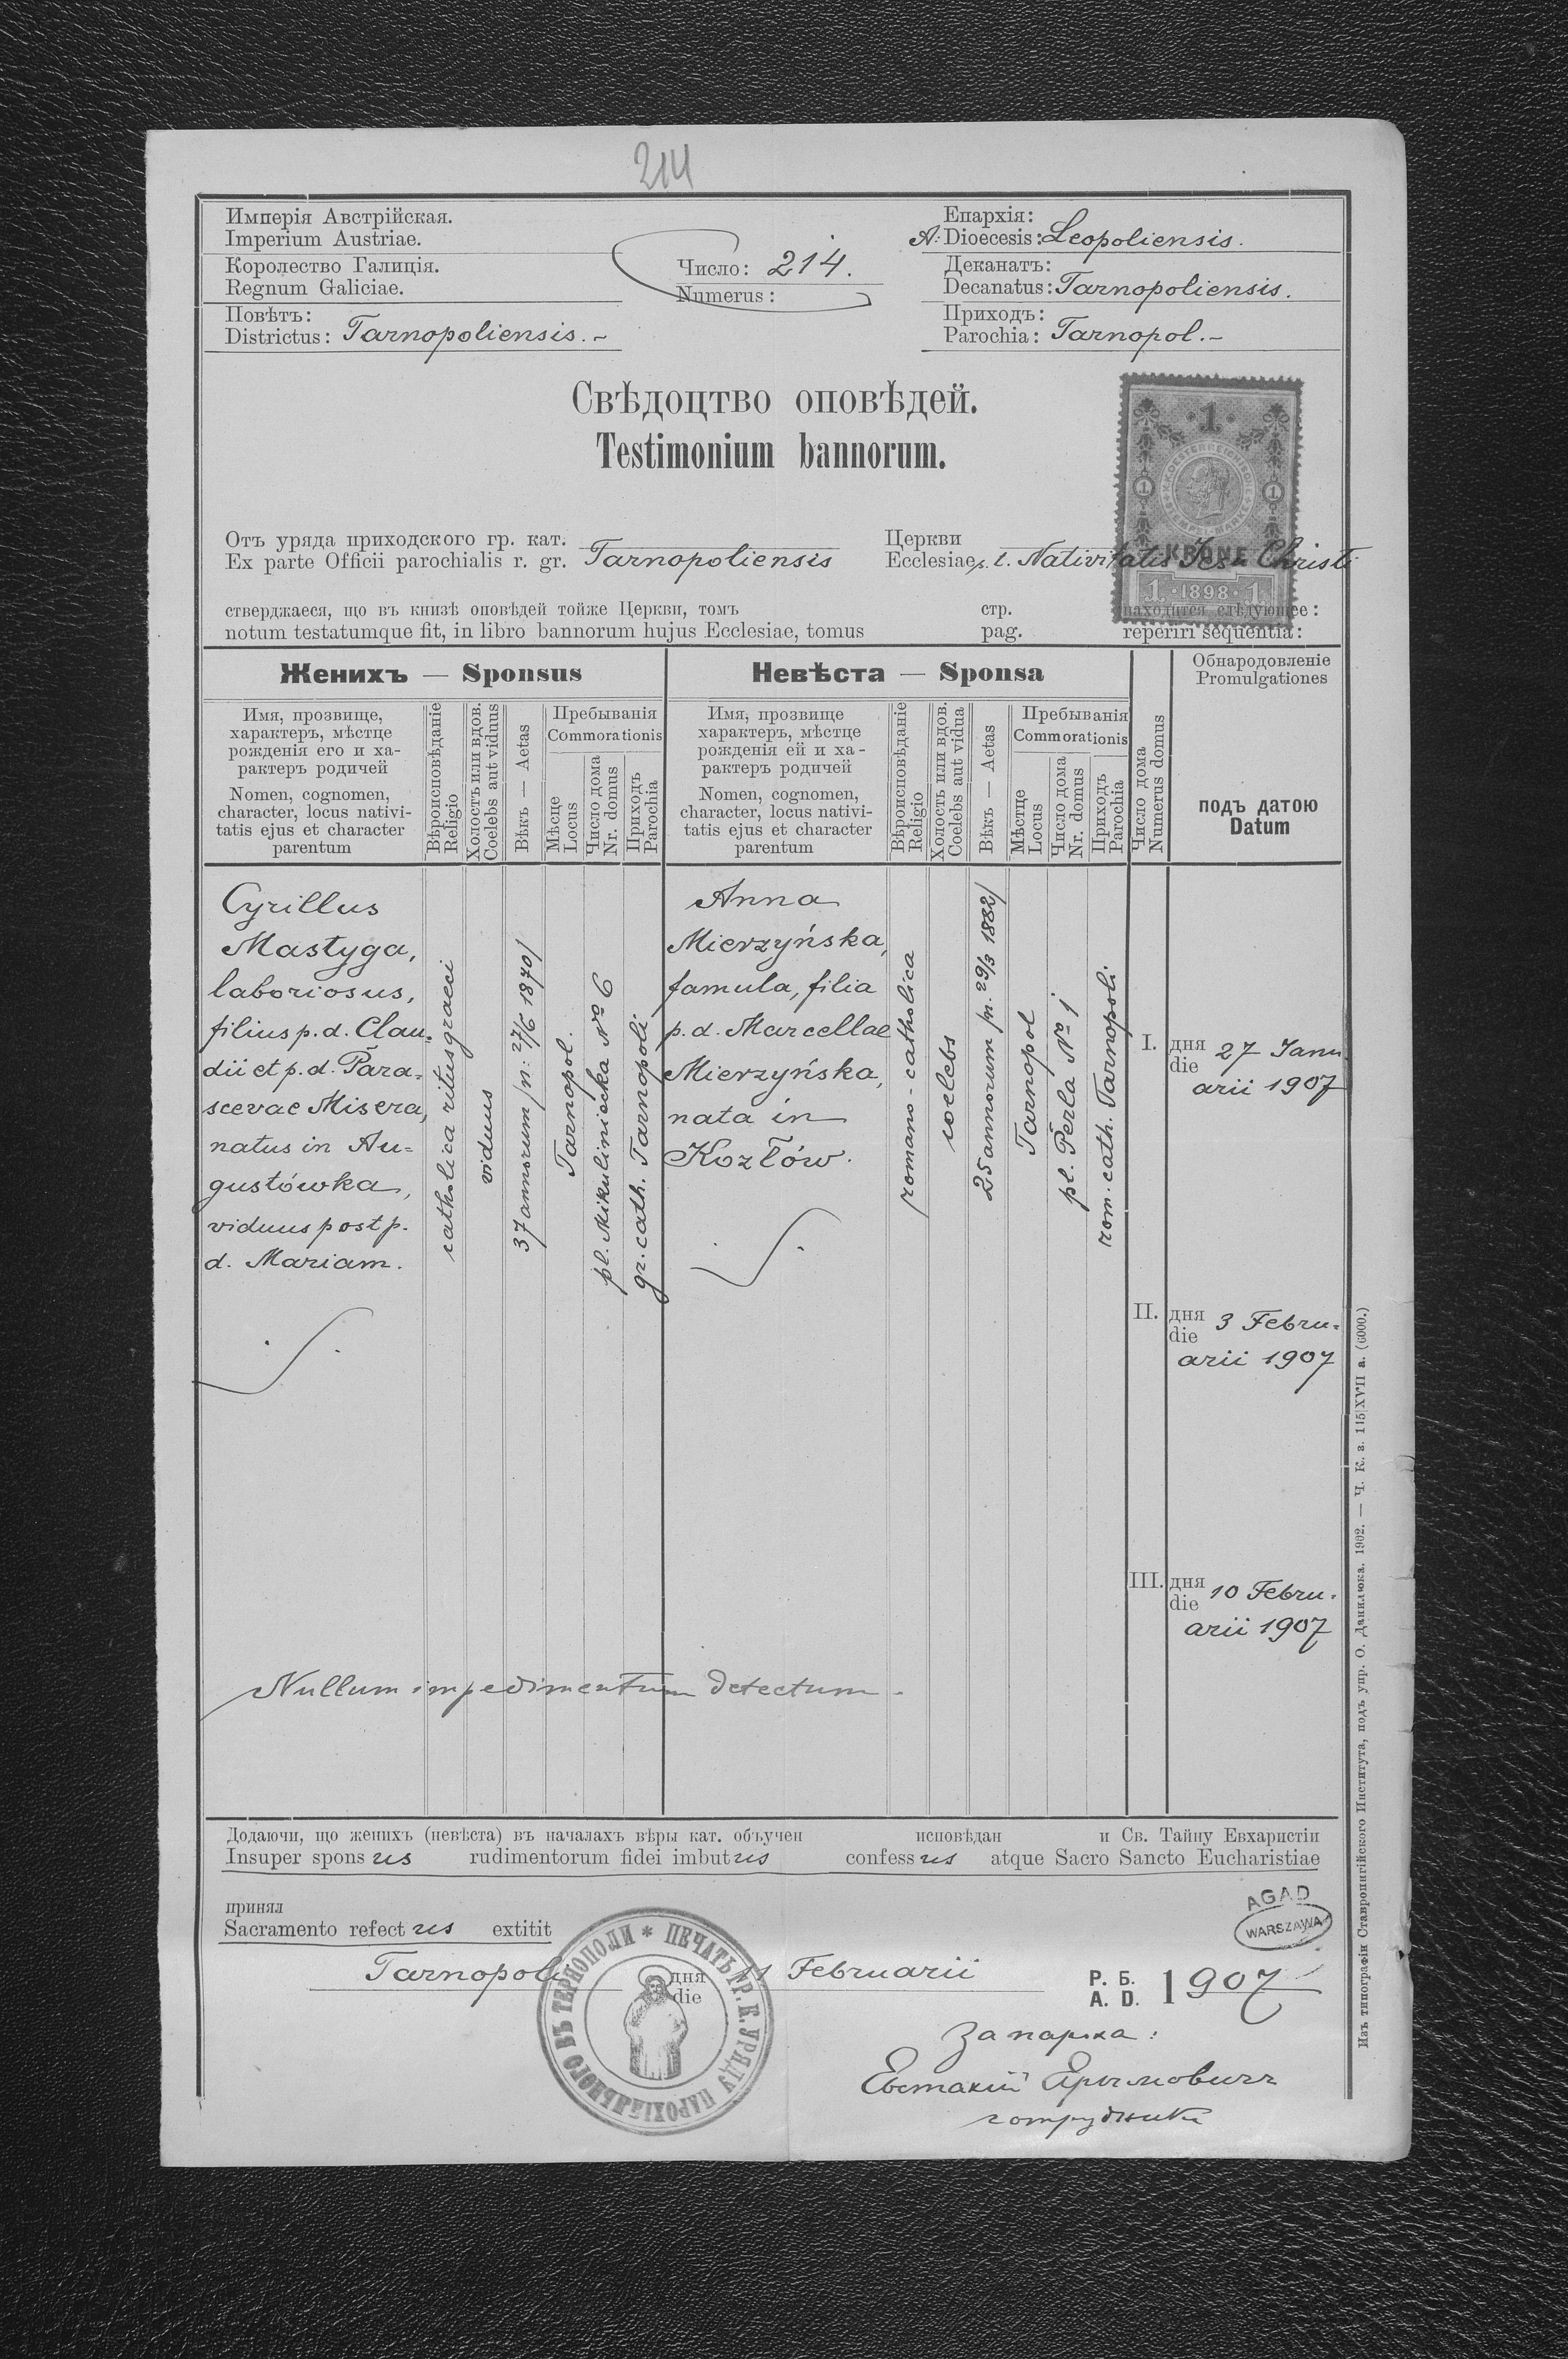 214
Имперія Австрійская.
Imperium Austriae.
Королество Галиція.
Regnum Galiciae.
Повѣтъ:
Districtus: Tarnopoliensis.-
Число: 214.
Numerus:
Епархія:
A. Dioecesis: Leopoliensis.
Деканатъ:
Decanatus: Tarnopoliensis.
Приходъ:
Parochia: Tarnopol.-
Свѣдоцтво оповѣдей.
Testimonium bannorum.
1
1 1
KRONE
1 · 1898 · 1
Отъ уряда приходского гр. кат. Церкви
Ex parte Officii parochialis r. gr. Tarnopoliensis Ecclesiae s. t. Nativitatis Jesu Christi
стверджаеся, що въ книзѣ оповѣдей тойже Церкви, томъ стр. находится слѣдующее:
notum testatumque fit, in libro bannorum hujus Ecclesiae, tomus pag. reperiri sequentia:
Женихъ — Sponsus
Невѣста — Sponsa
Число дома
Numerus domus
Обнародовленіе
Promulgationes
подъ датою
Datum
Имя, прозвище,
характеръ, мѣстце
рожденія его и ха-
рактеръ родичей
Nomen, cognomen,
character, locus nativi-
tatis ejus et character
parentum
Вѣроисповѣданіе
Religio
Холостъ или вдов.
Coelebs aut viduus
Вѣкъ — Aetas
Пребыванія
Commorationis
Мѣсце
Locus
Число дома
Nr. domus
Приходъ
Parochia
Имя, прозвище
характеръ, мѣстце
рожденія ей и ха-
рактеръ родичей
Nomen, cognomen,
character, locus nativi-
tatis ejus et character
parentum
Вѣроисповѣданіе
Religio
Холость или вдов.
Coelebs aut vidua
Вѣкъ — Aetas
Пребыванія
Commorationis
Мѣстце
Locus
Число дома
Nr. domus
Приходъ
Parochia
Cyrillus
Mastyga,
laboriosus,
filius p. d. Clau=
dii et p. d. Para=
scevae Misera,
natus in Au=
gustówka,
viduus post p.
d. Mariam.
catholica ritus graeci
viduus
37 annorum /n. 27/6 1870/
Tarnopol.
pl. Mikuliniecka No 6
gr. cath. Tarnopoli
Anna
Mierzyńska,
famula, filia
p. d. Marcellae
Mierzyńska,
nata in
Kozłów.
romano-catholica
coelebs
25 annorum /n. 29/3 1882/
Tarnopol
pl. Perla No 1
rom. cath. Tarnopoli
I. дня
die 27 Janu=
arii 1907
II. дня
die 3 Febru=
arii 1907
III. дня
die 10 Febru=
arii 1907
Nullum impedimentum detectum.
Додаючи, що женихъ (невѣста) въ началахъ вѣры кат. объучен исповѣдан и Св. Тайну Евхаристіи
Insuper sponsus rudimentorum fidei imbutus confessus atque Sacro Sancto Eucharistiae
принял
Sacramento refectus extitit
AGAD
WARSZAWA
Tarnopoli дня
die 11 Februarii Р. Б.
A. D. 1907
ПЕЧАТЬ ГР. К. УРЯДУ ПАРОХІЯЛЬНОГО ВЪ ТЕРНОПОЛИ *
За пароха:
Евстахій Ярымовичъ
сотрудникъ
Изъ типографіи Ставропигійского Института, подъ упр. О. Данилюка. 1902. — Ч. К. з. 115|XVII а. (6000.)